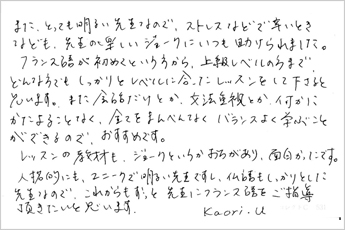 また、とっても明るい先生なので、ストレスなどで辛いとき
なども、先生の楽しいジョークにいつも助けられました。
フランス語が初めてという方から、上級レベルの方まで、
どんな方でもしっかりとレベルに合ったレッスンをして下さると
思います。また会話だけとか、文法重視とか、何かに
かたよることなく、全てをまんべんなくバランスよく学ぶこと
ができるので、おすすめです。
レッスンの教材も、ジョークというかおちがあり、面白かったです。
人格的にも、ユニークで明るい先生ですし、仏語もしっかりとした
先生なので、これからもずっと先生にフランス語をご指導
頂きたいと思います。
Kaori.U